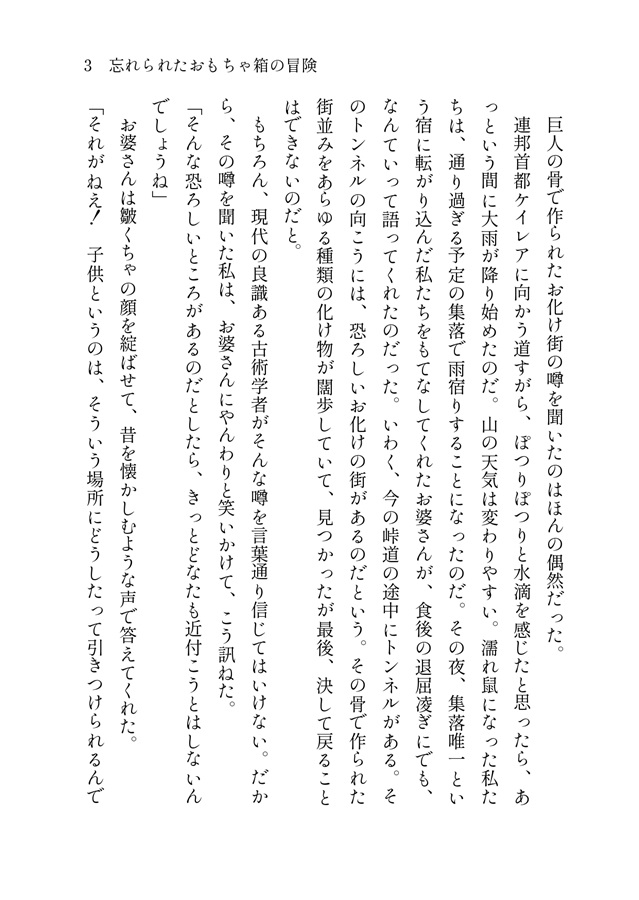 3　忘れられたおもちゃ箱の冒険
巨人の骨で作られたお化け街の噂を聞いたのはほんの偶然だった。
連邦首都ケイレアに向かう道すがら、ぽつりぽつりと水滴を感じたと思ったら、あ
っという間に大雨が降り始めたのだ。山の天気は変わりやすい。濡れ鼠になった私た
ちは、通り過ぎる予定の集落で雨宿りすることになったのだ。その夜、集落唯一とい
う宿に転がり込んだ私たちをもてなしてくれたお婆さんが、食後の退屈凌ぎにでも、
なんていって語ってくれたのだった。いわく、今の峠道の途中にトンネルがある。そ
のトンネルの向こうには、恐ろしいお化けの街があるのだという。その骨で作られた
街並みをあらゆる種類の化け物が闊歩していて、見つかったが最後、決して戻ること
はできないのだと。
もちろん、現代の良識ある古術学者がそんな噂を言葉通り信じてはいけない。だか
ら、その噂を聞いた私は、お婆さんにやんわりと笑いかけて、こう訊ねた。
「そんな恐ろしいところがあるのだとしたら、きっとどなたも近付こうとはしないん
でしょうね」
お婆さんは皺くちゃの顔を綻ばせて、昔を懐かしむような声で答えてくれた。
「それがねえ！　子供というのは、そういう場所にどうしたって引きつけられるんで